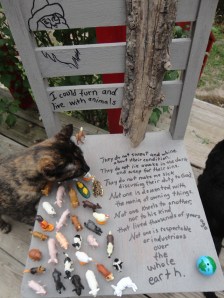 I could turn and
live with animals
They do not sweat and whine
about their condition.
They do not lie awake in the dark
and weep for their sins.
They do not make me sick
discussing their duty to God.
Not one is dissatisfied
Not one is demented with
the mania of owning things.
Not one kneels to another,
nor to his kind
that lived thousands of years ago.
Not one is respectable
or industrious
over
the
whole
earth.